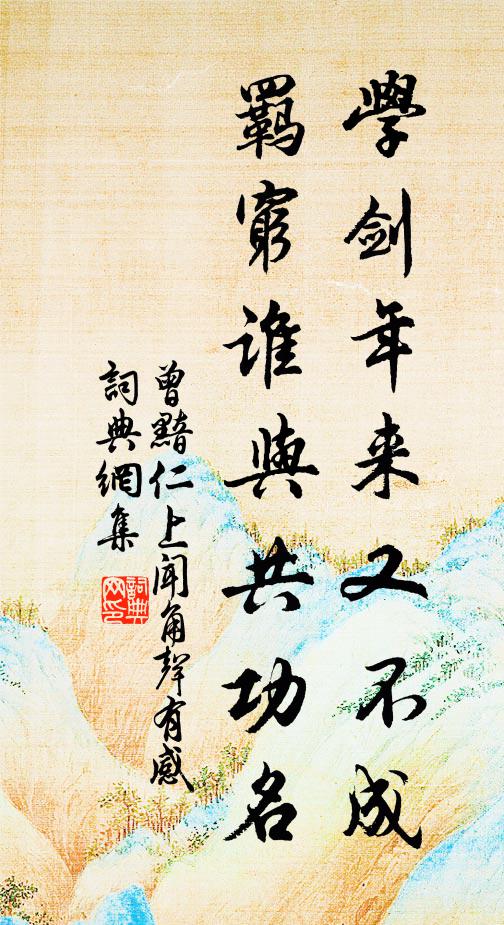 學劍年来又不成
羈窮谁與共功名
曾黯仁上聞角聲有感
詞典網集
詞典网印